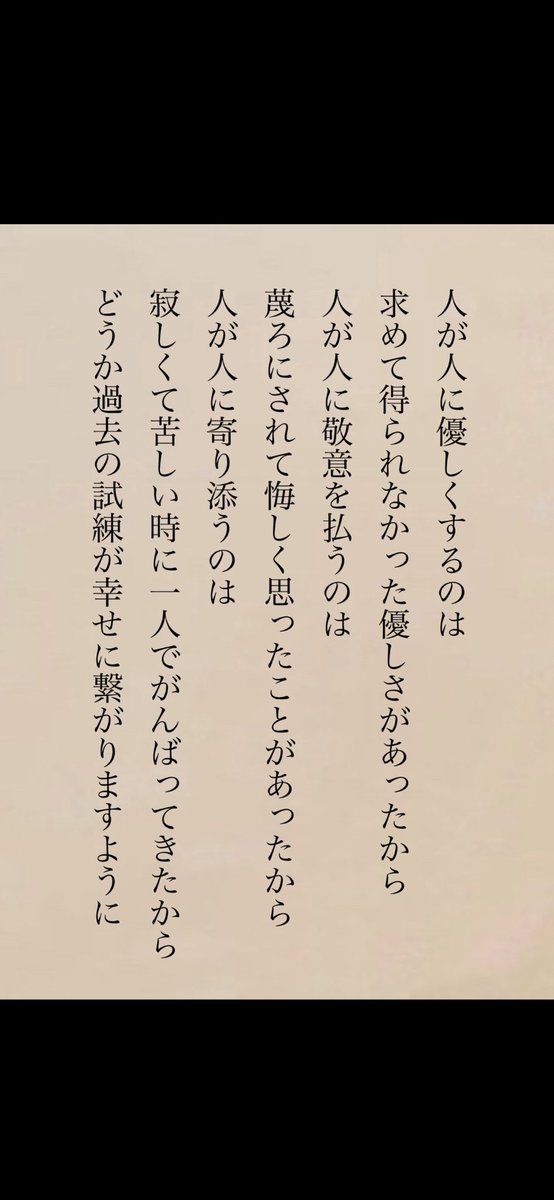 人が人に優しくするのは
求めて得られなかった優しさがあったから
人が人に敬意を払うのは
蔑ろにされて悔しく思ったことがあったから
人が人に寄り添うのは
寂しくて苦しい時に一人でがんばってきたから
どうか過去の試練が幸せに繋がりますように